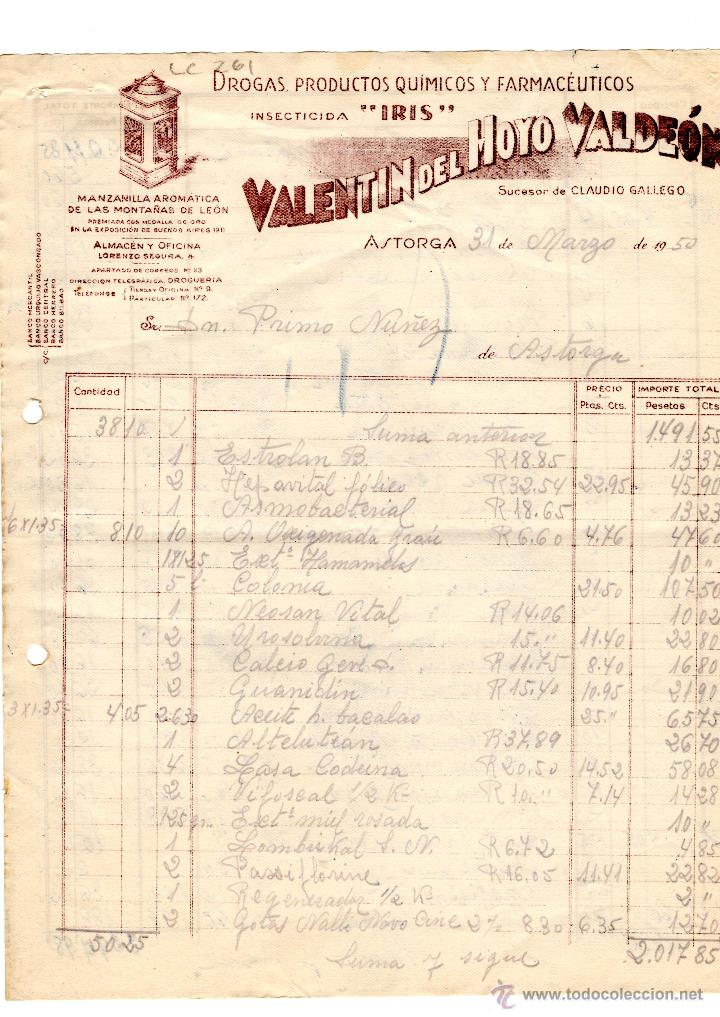 LC 261
DROGAS, PRODUCTOS QUÍMICOS Y FARMACÉUTICOS
INSECTICIDA "IRIS"
VALENTIN DEL HOYO VALDEÓN
Sucesor de CLAUDIO GALLEGO
MANZANILLA AROMATICA
DE LAS MONTAÑAS DE LEÓN
PREMIADA CON MEDALLA DE ORO
EN LA EXPOSICIÓN DE BUENOS AIRES 1911
ALMACÉN Y OFICINA
LORENZO SEGURA, 4
APARTADO DE CORREOS Nº 23
DIRECCIÓN TELEGRÁFICA: DROGUERIA
TELÉFONOS TIENDA Y OFICINA Nº 9.
PARTICULAR Nº 172.
C/C. BANCO MERCANTIL
BANCO URQUIJO VASCONGADO
BANCO CENTRAL
BANCO HERRERO
BANCO BILBAO
ASTORGA 31 de Marzo de 1950
Sr. Dn. Primo Nuñez
de Astorga
Cantidad PRECIO IMPORTE TOTAL
Ptas. Cts. Pesetas Cts
38 10 Suma anterior 1.491 55
1 Estrolan B. R 18.85 13 37
2 Hepavital fólico R 32.54 22.95 45 90
1 Asmobacterial R 18.65 13 23
6 x 1.35 = 8 10 10 A. Oxigenada R 6.60 4.76 47 60
Extº Hamamelis 10 "
5 l Colonia 21.50 107 50
1 Neosan Vital R 14.06 10 02
2 Urosolvina 15." 11.40 22 80
2 Calcio R 11.75 8.40 16 80
2 Guanidin R 15.40 10.95 21 90
3 x 1.35 = 4 05 2.630 Aceite h. bacalao 25." 65 75
1 R 37.89 26 70
4 Lasa Codeina R 20.50 14.52 58 08
2 Vifoscal 1/2 K R 10." 7.14 14 28
125 gr. Extº miel rosada 10 "
1 S. N. R 6.72 4 85
2 Passiflorine R 16.05 11.41 22 82
1 Regenerador 1/2 K 2 "
2 Gotas Novo Cine 2% 8.90 6.35 12 70
50 25 2.017 85
Suma y sigue
www.todocoleccion.net